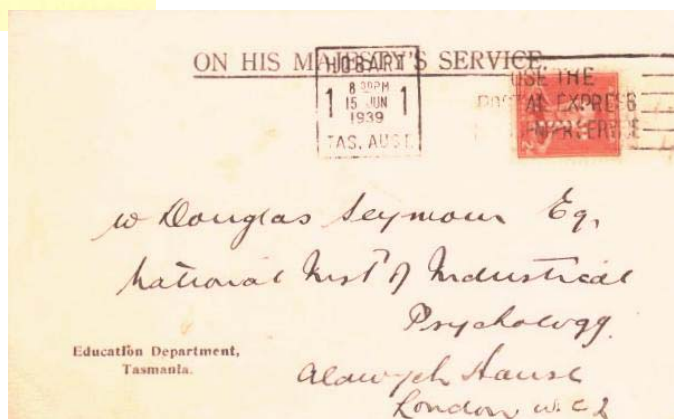 ON HIS MAJESTY'S SERVICE.
HOBART
8 30PM
1 15 JUN 1
1939
TAS. AUST.
USE THE
POSTAL EXPRESS
SERVICE
W Douglas Seymour Esq,
National Inst of Industrial
Psychology.
Aldwych House
London W.C.2
Education Department,
Tasmania.